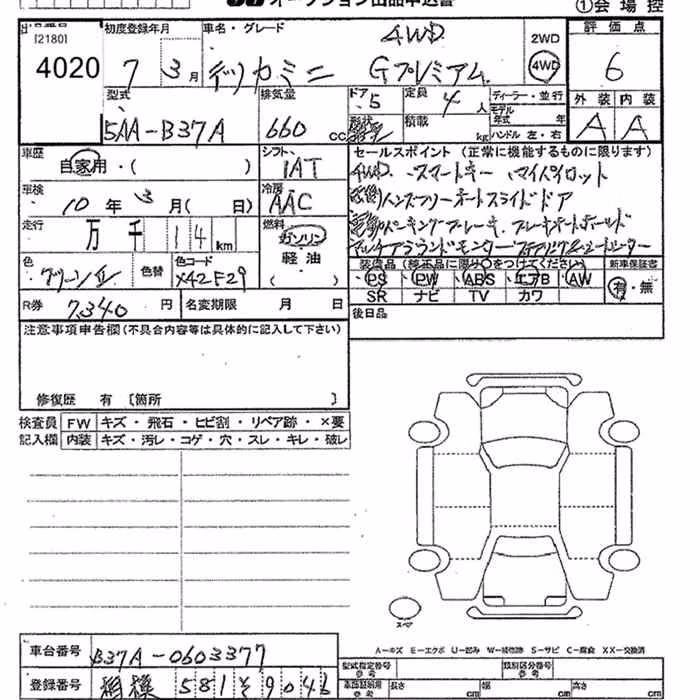 オークション出品申込書
①会場控
[2180]
4020
初度登録年月
7年 3月
車名・グレード
4WD
デリカミニ Gプレミアム
2WD
4WD
評価点
6
型式
5AA-B37A
排気量
660 CC
ドア 5
定員 4人
形状
積載 kg
ディーラー・並行
モデル年式 年
ハンドル 左・右
外装 内装
A A
車歴
自家用・( )
シフト
IAT
車検
10年 3月( 日)
冷房
AAC
走行
万 千 14 km
燃料
ガソリン
軽油
( )
色
グリーンII
色替
色コード
X42F29
R券
7,340円
名変期限 月 日
セールスポイント (正常に機能するものに限ります)
4WD・スマートキー マイパイロット
両側ハンズフリーオートスライドドア
電動パーキングブレーキ ブレーキオートホールド
マルチアラウンドモニター ステアリングヒーター シートヒーター
装備品 (純正品に限り○をつけてください)
PS PW ABS エアB AW
SR ナビ TV カワ
新車保証書
有・無
後日品
注意事項申告欄(不具合内容等は具体的に記入して下さい)
修復歴 有 〔箇所 〕
検査員記入欄
FW キズ・飛石・ヒビ割・リペア跡・×要
内装 キズ・汚レ・コゲ・穴・スレ・キレ・破レ
スペア
A-キズ E-エクボ U-凹み W-補修跡 S-サビ C-腐食 XX-交換済
車台番号
B37A-0603377
登録番号
相模 581 そ 9046
型式指定番号 参考
類別区分番号 参考
車両登録用 参考
長さ cm
幅 cm
高さ cm